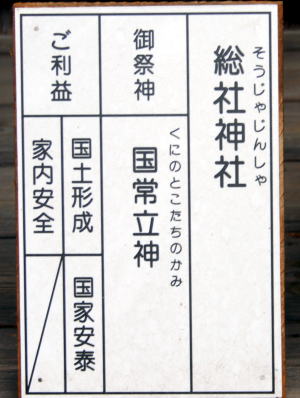 総社神社
そうじゃじんしゃ
御祭神
国常立神
くにのとこたちのかみ
ご利益
国土形成
国家安泰
家内安全